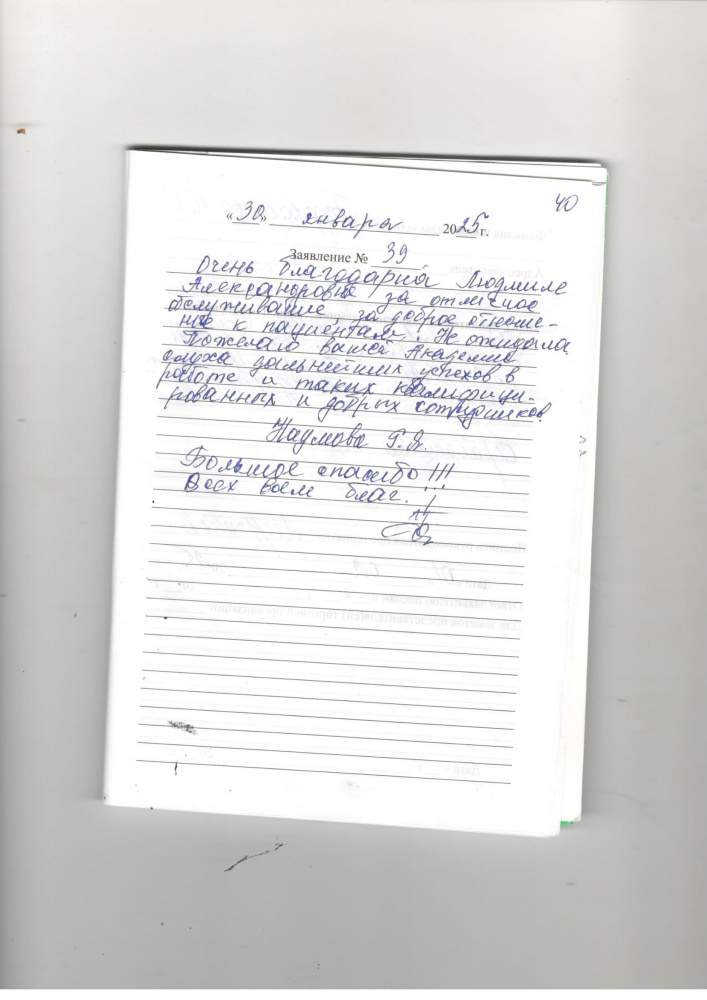 40
«30» января 2025 г.
Заявление № 39
Очень благодарна Людмиле
Александровне за отличное
обслуживание, за доброе отноше-
ние к пациентам. Не ожидала
Пожелаю вашей Академии
слуха дальнейших успехов в
работе и таких квалифици-
рованных и добрых сотрудников.
Наумова Г. Я.
Большое спасибо!!!
Всех всем благ.